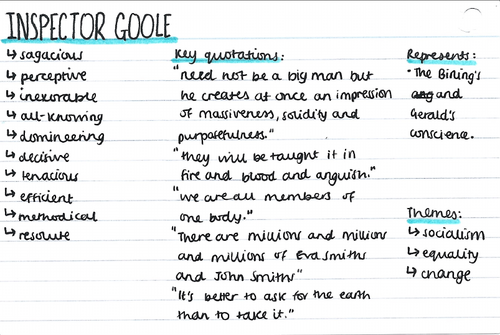 INSPECTOR GOOLE
↳ sagacious
↳ perceptive
↳ inexorable
↳ all-knowing
↳ domineering
↳ decisive
↳ tenacious
↳ efficient
↳ methodical
↳ resolute
Key quotations:
"need not be a big man but
he creates at once an impression
of massiveness, solidity and
purposefulness."
"they will be taught it in
fire and blood and anguish."
"we are all members of
one body."
"There are millions and millions
and millions of Eva Smiths
and John Smiths"
"It's better to ask for the earth
than to take it."
Represents:
- The Birling's
and
Gerald's
conscience.
Themes:
↳ socialism
↳ equality
↳ change